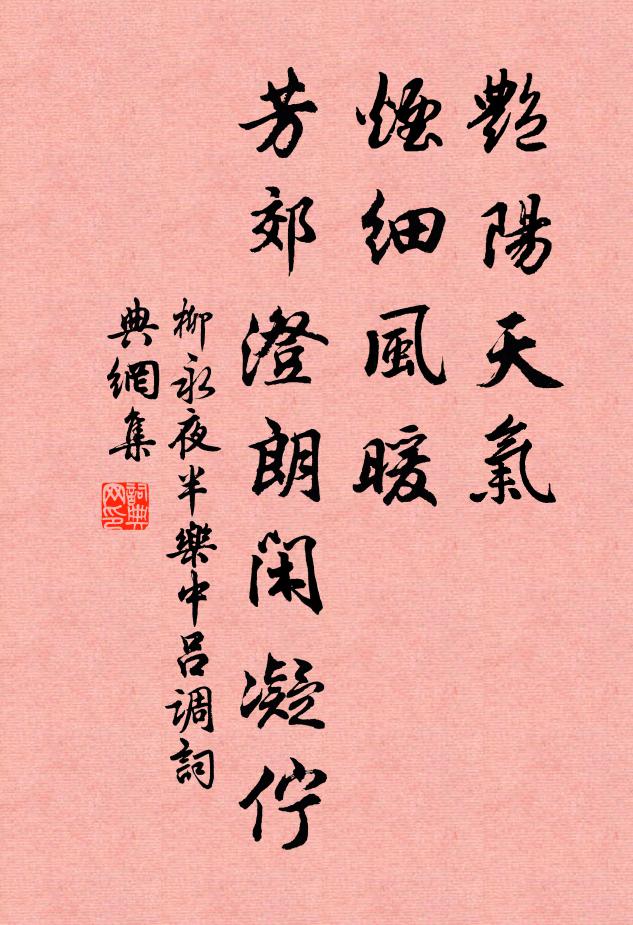 艷陽天氣
煙細風暖
芳郊澄朗閑凝佇
柳永夜半樂中呂調詞
典網集
詞典网印